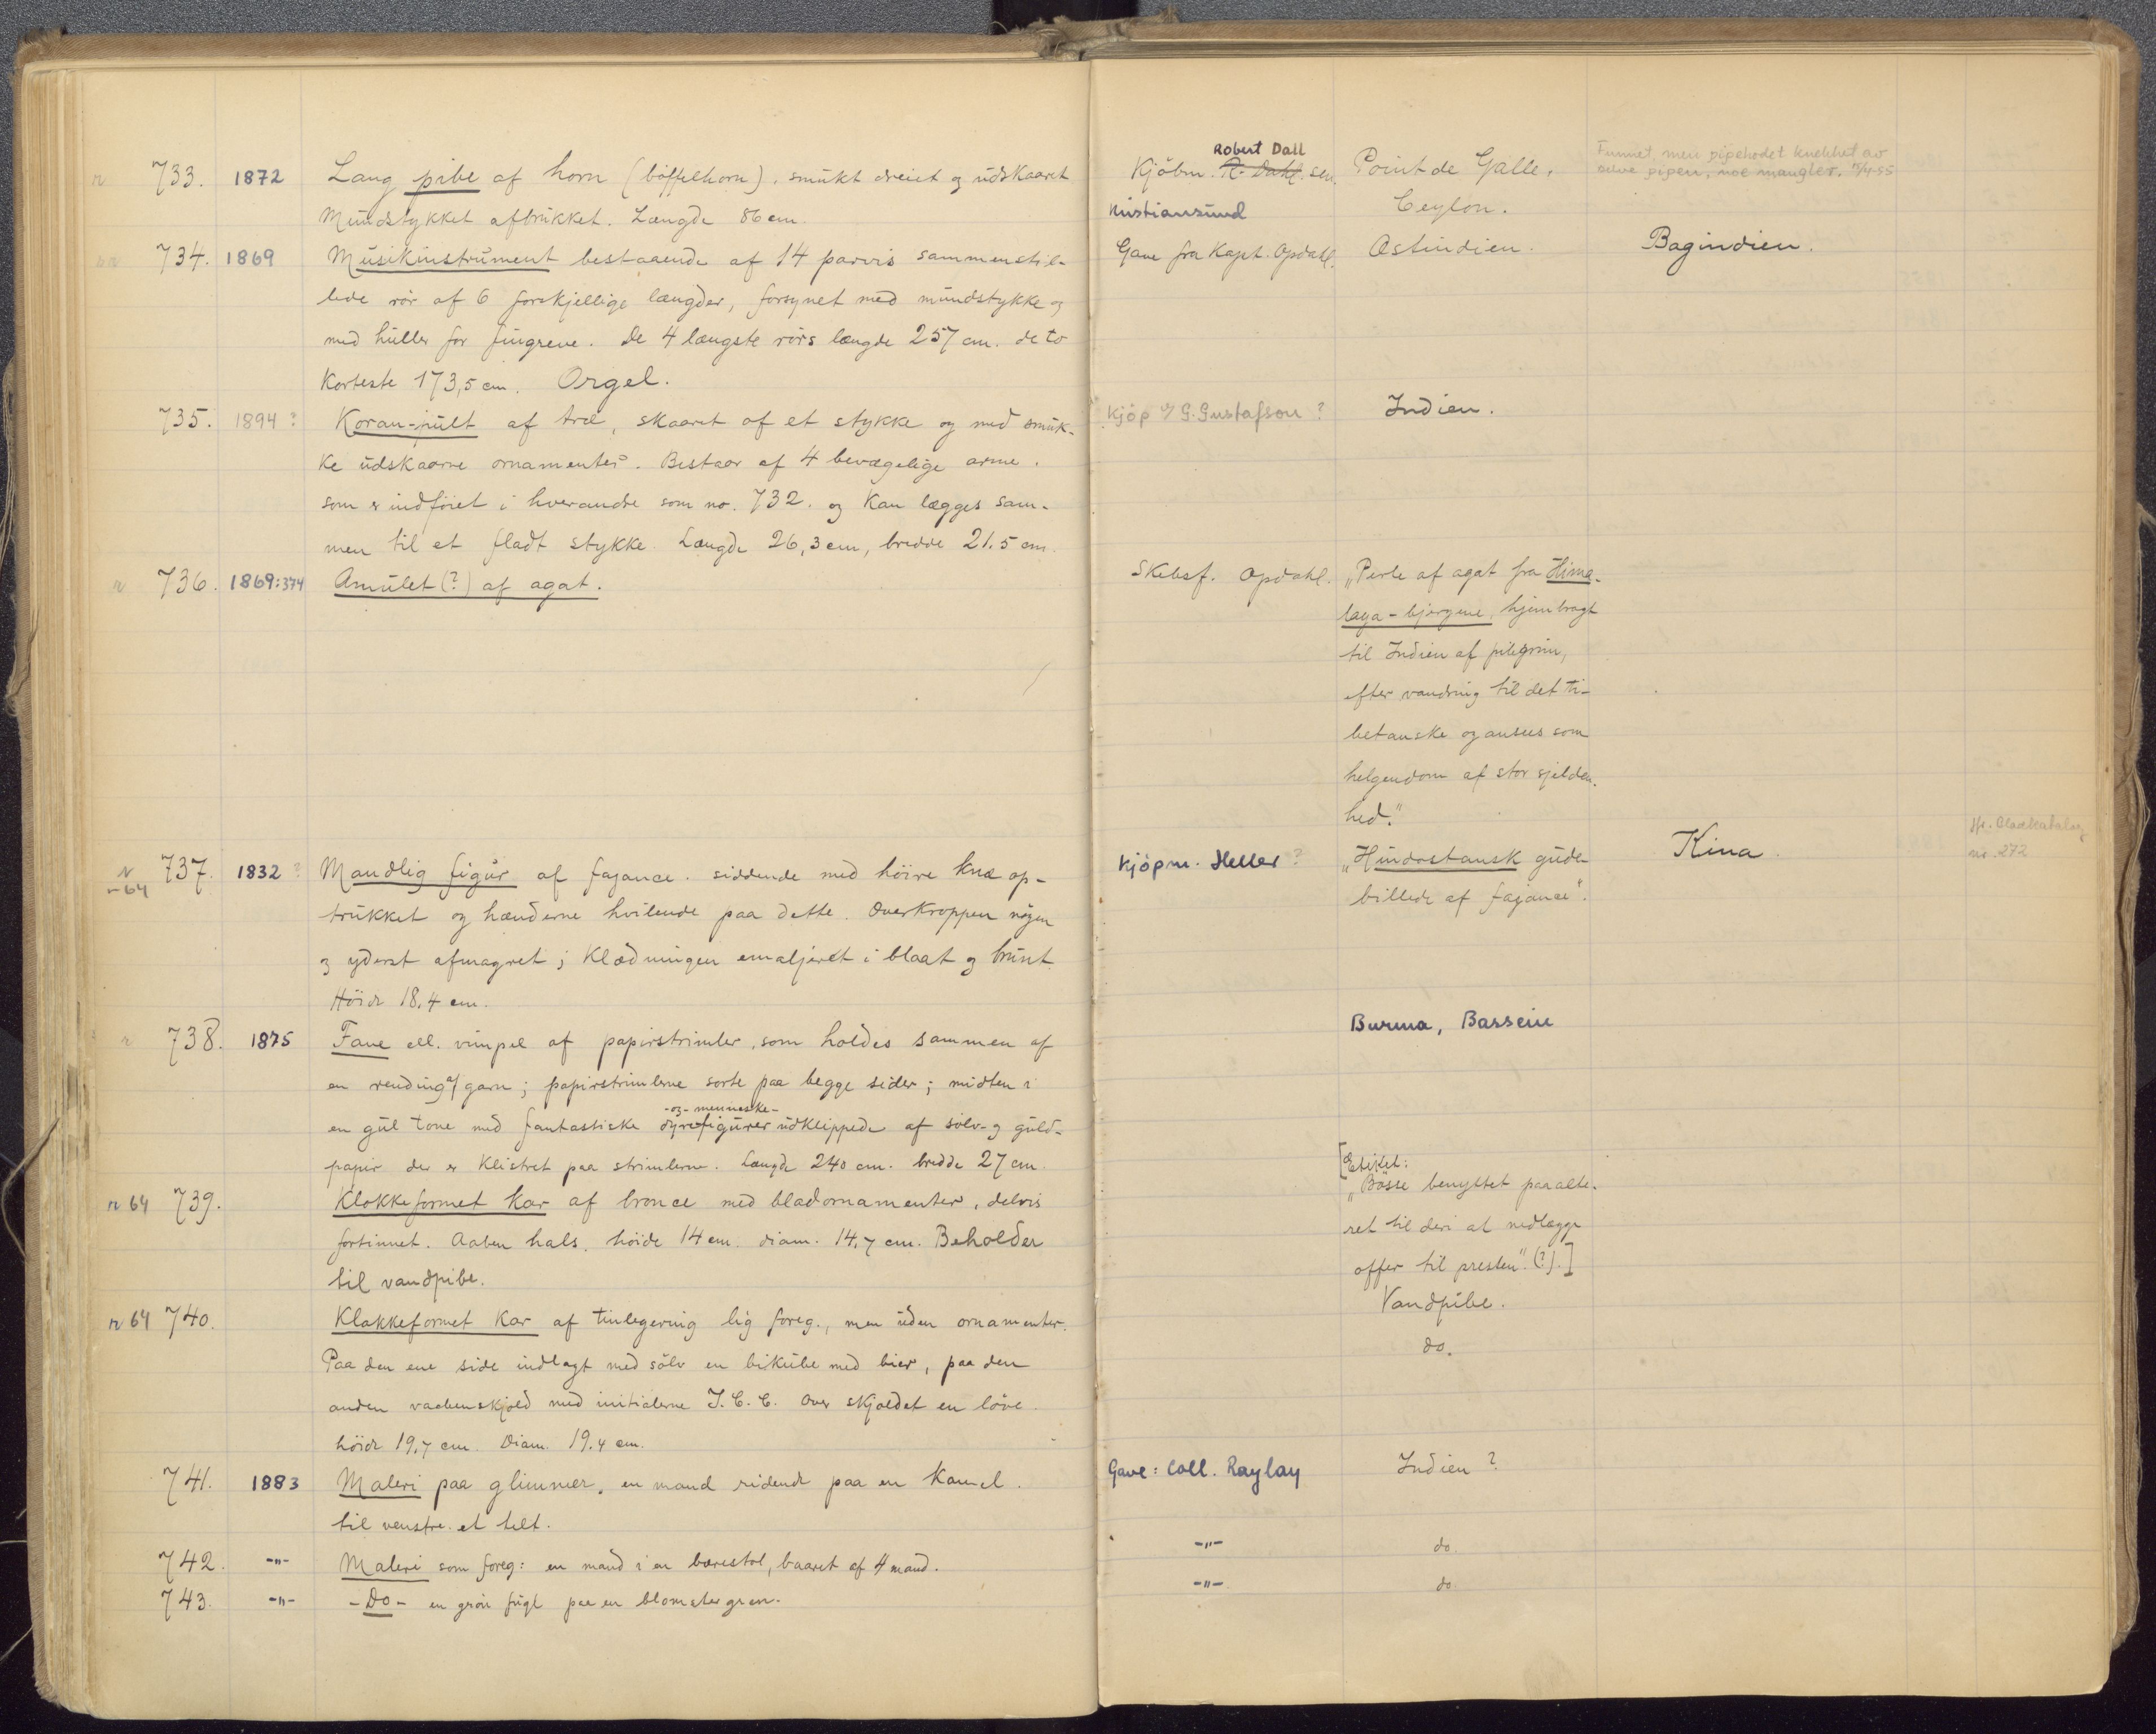 n 733. 1872 Lang pibe af horn (böffelhorn). smukt dreiet og udskaaret
Mundstykket afbrukket. Længde 86 cm.
734. 1869 Musikinstrument bestaaende af 14 parvis sammenstil-
lede rör af 6 forskjellige længder, forsynet med mundstykke og
med huller for fingrene. De 4 længste rörs længde 257 cm. de to
korteste 173,5 cm. Orgel.
735. 1894 ? Koran-pult af træ, skaaret af et stykke og med smuk-
ke udskaarne ornamenter. Bestaar af 4 bevægelige arme.
som er indföiet i hverandre som no. 732. og kan lægges sam-
men til et fladt stykke. Længde 26,3 cm, bredde 21.5 cm.
n 736. 1869:374 Amulet (?) af agat.
n -64 737. 1832 ? Mandlig figur af fajance. siddende med höire knæ op-
trukket og hænderne hvilende paa dette. Overkroppen nögen
og yderst afmagret; Klædningen emaljeret i blaat og brunt.
Höide 18.4 cm.
n 738. 1875 Fane ell. vimpel af papirstrimler, som holdes sammen af
en rending af garn; papirstrimlerne sorte paa begge sider; midten i
-og-menneske-
en gul tone med fantastiske dyrefigurer udklippede af sölv- og guld-
papir der er klistret paa strimlerne. Længde 240 cm. bredde 27 cm.
n 64 739. Klokkeformet kar af bronce med bladornamenter, delvis
fortinnet. Aaben hals. höide 14 cm. diam. 14,7 cm. Beholder
til vandpibe.
n 64 740. Klokkeformet Kar af tinlegering lig foreg., men uden ornamenter.
Paa den ene side indlagt med sölv en bikube med bier, paa den
anden vaabenskjold med initialerne J. C. C. Over skjoldet en löve.
höide 19,7 cm. Diam. 19.4 cm.
741. 1883 Maleri paa glimmer, en mand ridende paa en Kamel.
til venstre et telt.
742. -"- Maleri som foreg: en mand i en bærestol, baaret af 4 mand.
743. -"- -Do- en grön fugl paa en blomstergren.
Robert Dall
Kjöbm. R. Dahl. sen. Point de Galle, Funnet, men pipehodet knekket av
selve pipen, noe mangler. 15/4-55
Kristiansund Ceylon.
Gave fra Kapt. Opdahl. Ostindien. Bagindien.
Kjöp v/ G. Gustafson ? Indien.
Skebsf. Opdahl. „Perle af agat fra Hima-
laya-bjergene, hjembragt
til Indien af pilegrim,
efter vandring til det ti-
betanske og ansees som
helgendom af stor sjelden-
hed."
Kjöpm. Heller ? „Hindostansk gude- Kina.
no. 272
billede af fajance".
Burma, Bassein
[Etiket:
„Bösse benyttet paa alte-
ret til deri at nedlægge
offer til presten". (?).]
Vandpibe.
do.
Gave: Coll. Raylay Indien ?
-"- do.
-"- do.